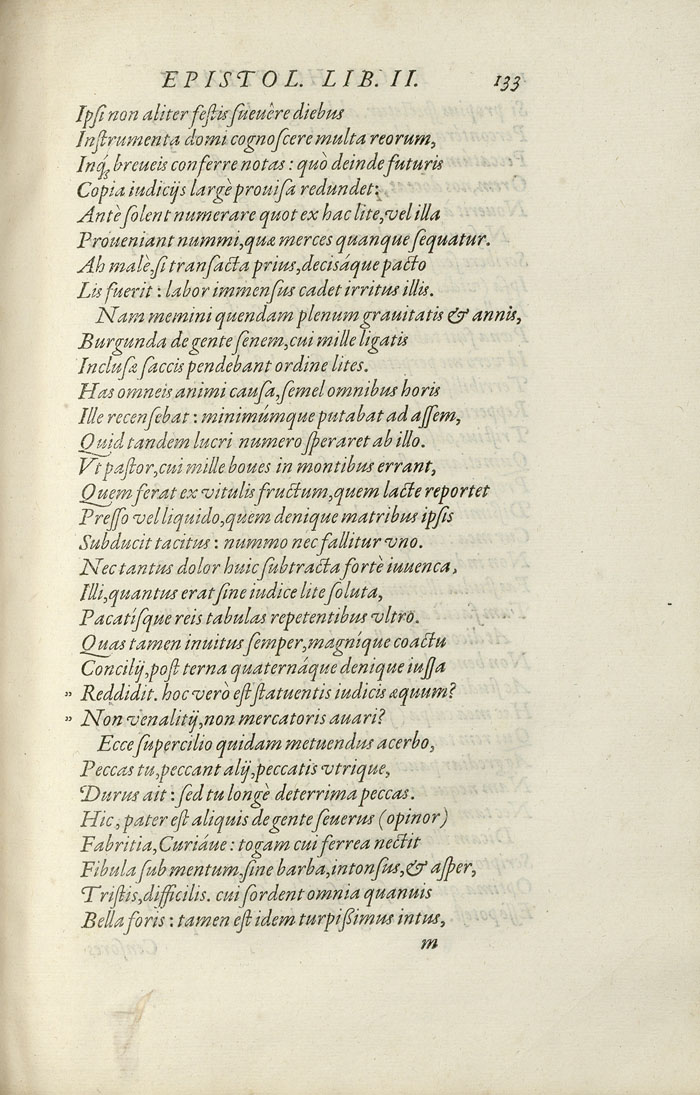 EPISTOL. LIB. II. 133
Ipsi non aliter festis sueuêre diebus
Instrumenta domi cognoscere multa reorum,
Inq́; breueis conferre notas : quò deinde futuris
Copia iudicijs largè prouisa redundet:
Antè solent numerare quot ex hac lite,vel illa
Proueniant nummi,quæ merces quanque sequatur.
Ah malè,si transacta prius,decisáque pacto
Lis fuerit : labor immensus cadet irritus illis.
Nam memini quendam plenum grauitatis & annis,
Burgunda de gente senem,cui mille ligatis
Inclusæ saccis pendebant ordine lites.
Has omneis animi causa,semel omnibus horis
Ille recensebat : minimúmque putabat ad assem,
Quid tandem lucri numero speraret ab illo.
Vt pastor,cui mille boues in montibus errant,
Quem ferat ex vitulis fructum,quem lacte reportet
Presso vel liquido,quem denique matribus ipsis
Subducit tacitus : nummo nec fallitur vno.
Nec tantus dolor huic subtracta fortè iuuenca,
Illi,quantus erat sine iudice lite soluta,
Pacatísque reis tabulas repetentibus vltro.
Quas tamen inuitus semper,magníque coactu
Concilij,post terna quaternáque denique iussa
" Reddidit. hoc verò est statuentis iudicis æquum?
" Non venalitij,non mercatoris auari?
Ecce supercilio quidam metuendus acerbo,
Peccas tu,peccant alij,peccatis vtrique,
Durus ait : sed tu longè deterrima peccas.
Hic, pater est aliquis de gente seuerus (opinor)
Fabritia,Curiáue : togam cui ferrea nectit
Fibula sub mentum,sine barba,intonsus,& asper,
Tristis,difficilis. cui sordent omnia quanuis
Bella foris : tamen est idem turpißimus intus,
m